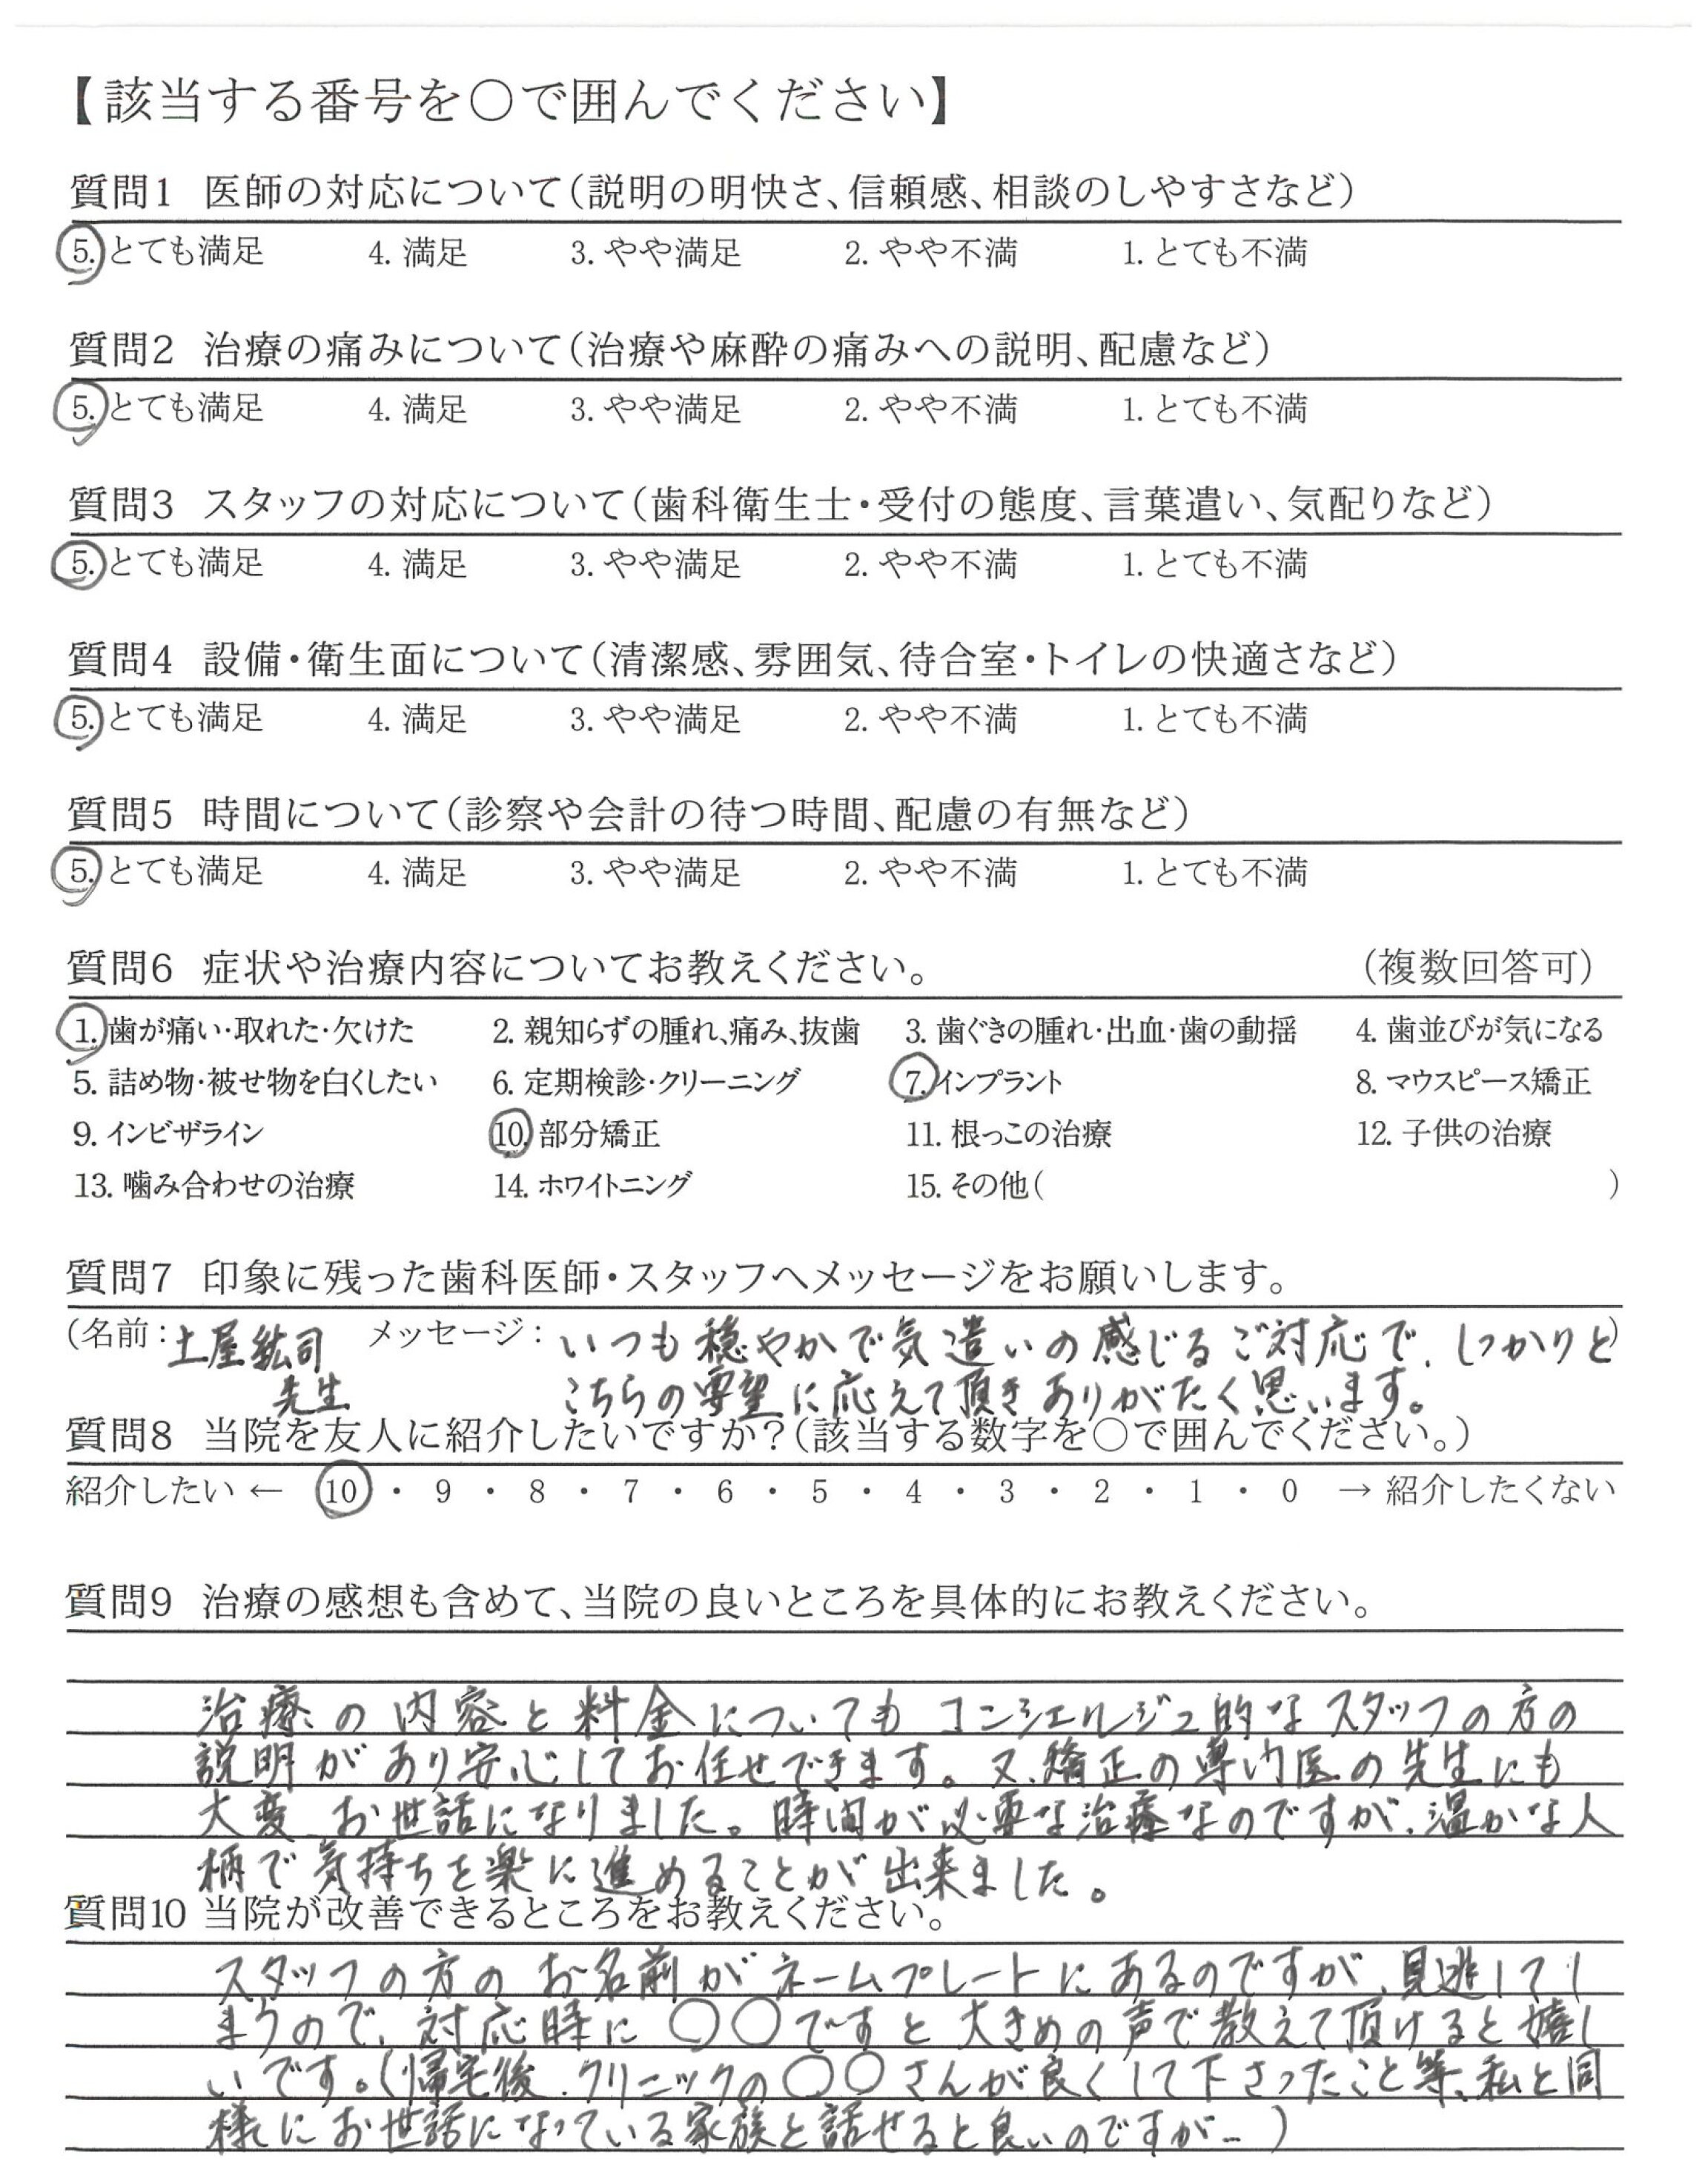 【該当する番号を○で囲んでください】
質問1 医師の対応について（説明の明快さ、信頼感、相談のしやすさなど）
5. とても満足 4. 満足 3. やや満足 2. やや不満 1. とても不満
質問2 治療の痛みについて（治療や麻酔の痛みへの説明、配慮など）
5. とても満足 4. 満足 3. やや満足 2. やや不満 1. とても不満
質問3 スタッフの対応について（歯科衛生士・受付の態度、言葉遣い、気配りなど）
5. とても満足 4. 満足 3. やや満足 2. やや不満 1. とても不満
質問4 設備・衛生面について（清潔感、雰囲気、待合室・トイレの快適さなど）
5. とても満足 4. 満足 3. やや満足 2. やや不満 1. とても不満
質問5 時間について（診察や会計の待つ時間、配慮の有無など）
5. とても満足 4. 満足 3. やや満足 2. やや不満 1. とても不満
質問6 症状や治療内容についてお教えください。 （複数回答可）
1. 歯が痛い・取れた・欠けた 2. 親知らずの腫れ、痛み、抜歯 3. 歯ぐきの腫れ・出血・歯の動揺 4. 歯並びが気になる
5. 詰め物・被せ物を白くしたい 6. 定期検診・クリーニング 7. インプラント 8. マウスピース矯正
9. インビザライン 10. 部分矯正 11. 根っこの治療 12. 子供の治療
13. 噛み合わせの治療 14. ホワイトニング 15. その他（ ）
質問7 印象に残った歯科医師・スタッフへメッセージをお願いします。
（名前：土屋紘司 メッセージ：いつも穏やかで気遣いの感じるご対応で、しっかりと）
先生 こちらの要望に応えて頂きありがたく思います。
質問8 当院を友人に紹介したいですか？（該当する数字を○で囲んでください。）
紹介したい ← 10 ・ 9 ・ 8 ・ 7 ・ 6 ・ 5 ・ 4 ・ 3 ・ 2 ・ 1 ・ 0 → 紹介したくない
質問9 治療の感想も含めて、当院の良いところを具体的にお教えください。
治療の内容と料金についてもコンシェルジュ的なスタッフの方の
説明があり安心してお任せできます。又、矯正の専門医の先生にも
大変、お世話になりました。時間が必要な治療なのですが、温かな人
柄で気持ちを楽に進めることが出来ました。
質問10 当院が改善できるところをお教えください。
スタッフの方のお名前がネームプレートにあるのですが、見逃してし
まうので、対応時に○○ですと大きめの声で教えて頂けると嬉し
いです。（帰宅後、クリニックの○○さんが良くして下さったこと等、私と同
様にお世話になっている家族と話せると良いのですが…）